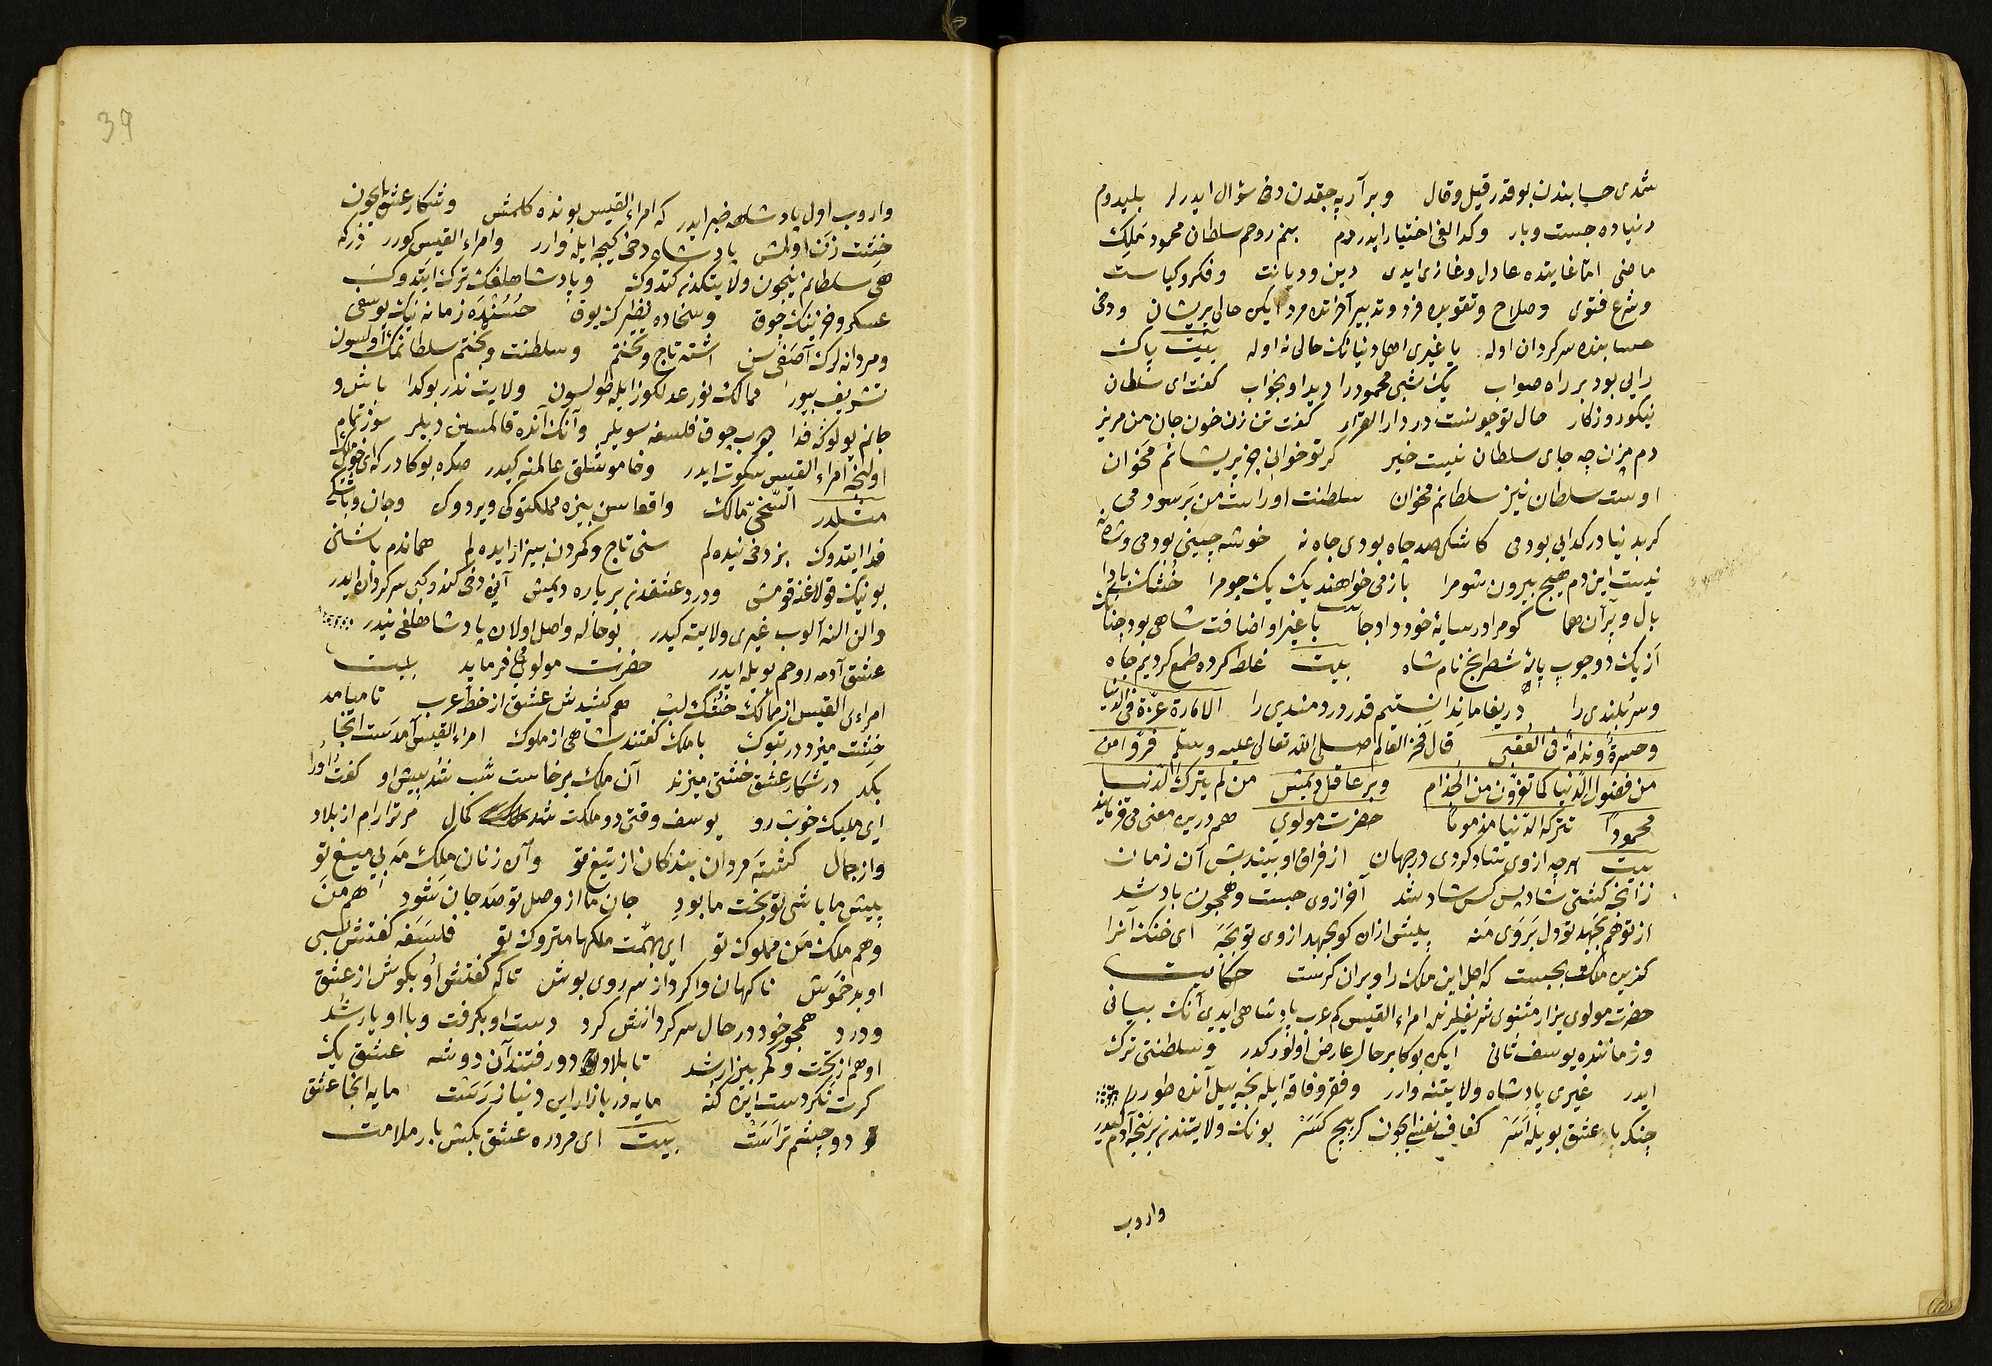 شمدی حسابندن بو قدر قیل وقال وبر آرپه چقدن دخی سؤال ایدرلر بلیدوم
دنیاده جست وبار وکدالغی اختیار ایدردم بنم روحم سلطان محمود ملک
ماضی اثنا غایتده عادل وغازی ایدی دین ودیانت وفکر وکیاست
وشرع فتوی وصلاح وتقویده فرد وتدبیر آخرتده مرد ایکن حالی پریشان ودخی
حسابنده سرکردان اوله یا غیری اهل دنیانک حالی نه اوله بیت پاک
رایی بود بر راه صواب یک شبی محمود را دید او بخواب کفت ای سلطان
نیکو روزکار حال تو چونست در دار القرار کفت تن زن خون جان من مریز
دم مزن چه جای سلطان نیست خیز کر تو خوانی جز پریشانم مخوان
اوست سلطان نیز سلطانم مخوان سلطنت اوراست من بر سودمی
کر بدنیا در کدایی بودمی کاشکی صد چاه بودی جاه نه خوشه چینی بودمی وشاه نه
نیست این دم هیچ بیرون شو مرا باز می خواهند یک یک جو مرا خشک بادا
بال وپر آن هما کو مرا در سایهٔ خود داد جا بیت با غیر او اضافت شاهی بود چنان
از یک دو چوب پایهٔ شطرنج نام شاه بیت غلط کرده طمع کردیم جاه
وسر بلندی را دریغا ما ندانستیم قدر دردمندی را الامارة عزّة فی الدنیا
وحسرة وندامة فی العقبی قال فخر العالم صلی الله تعالی علیه وسلم فرّوا من
من فضول الدنیا کما تفرّون من الجذام وبر عاقل دیمش من لم یترک الدنیا
محموداً تترکه الدنیا مذموماً حضرت مولوی هم درین معنی می فرماید
بیت هرچه ازوی شاد کردی در جهان از فراق او بیندیش آن زمان
زانچه کشتی شاد بس کس شاد شد آخر ازوی جست وهمچون باد شد
از تو هم بجهد تو دل بروی منه پیش ازان کو بجهد ازوی تو بجه ای خنک آنرا
کزین ملکت بجست که اجل این ملک را ویران کرست حکایت
حضرت مولوی بیزار مثنوی شریفلرنده امراء القیس کم عرب پادشاهی ایدی آنک بیانی
وزماننده یوسف ثانی ایکن بوکا بر حال عارض اولور کدر وسلطنتی ترک
ایدر غیری پادشاه ولایتنه وارر وفقر وفاقه ایله نجه ییل آنده طورر
چنکه یا عشق بویله اسر کفاف نفسی ایچون کرپیچ کسر بونک ولایتندن بر نیجه آدم کیدر
واروب
واروب اول پادشاهه خبر ایدر که امراء القیس بونده کلمش وشکار عشق ایچون
خشت زن اولمش پادشاه دخی کیجه ایله وارر وامراء القیسی کورر دزکه
هی سلطانم نیچون ولایتکدن کتدوک وپادشاهلغک ترک ایتدوک
عسکر وخزینک چوق وسخاده نظیرک یوق حسنده زمانه نک یوسفی
ومردانه لرک آصفی سن اشته تاج وتختم وسلطنت وبختم سلطانمک اولسون
تشریف بیور ممالک نور عدلکوز ایله طولسون ولایت ندر بوکدا باش و
جانم یولوکه فدا دیوب چوق فلسفه سویلر وآنک آنده قالمسین دیلر سوز تمام
اولنجه امراء القیس سکوت ایدر وخاموشلق عالمنه کیدر صکره بوکا در که ای
السّخیّ مالک واقعا سن بیزه مملکتوکی ویردوک وجان وباشکی
فدا ایتدوک بز دخی نیده لم سنی تاج وکمردن بیزار ایده لم هماندم باشنی
بونیک قولاغنه قومش ودرد عشقدن بر پاره دیمش آنی دخی کندو کبی سرکردان ایدر
والن النه آلوب غیری ولایته کیدر بو حاله واصل اولان پادشاهلغی نیدر
عشق آدمه روحم بویله ایدر حضرت مولوی می فرماید بیت
امراءی القیس از ممالک خشک لب هم کشیدش عشق از خطهٔ عرب تا بیامد
خشت میزد در تبوک با ملک کفتند شاهی از ملوک امراء القیس آمدست اینجا
بکد در شکار عشق خشتی میزند آن ملک برخاست شب شد پیش او کفت اورا
ای ملیک خوب رو یوسف وقتی دو ملکت شد کمال مر ترا رام از بلاد
واز جمال کشته مردان بندکان از تیغ تو وآن زنان ملک مه بی میغ تو
پیش ما باشی تو بخت ما بود جان ما از وصل تو صد جان شود هم من
وهم ملک من مملوک تو ای بهمّت ملکها متروک تو فلسفه کفتش بسی
او بد خموش ناکهان واکرد از سر روی پوش تا که کفتش او بکوش از عشق
ودرد همچو خود در حال سرکردانش کرد دست او بکرفت وبا او یار شد
او هم از تخت وکمر بیزار شد تا بلاد دور رفتند آن دو شه عشق یک
کرت نکردست این کنه مایه در بازار این دنیا زرست مایه اینجا عشق
دو چشم ترست بیت ای مرد ره عشق بکش بار ملامت
39